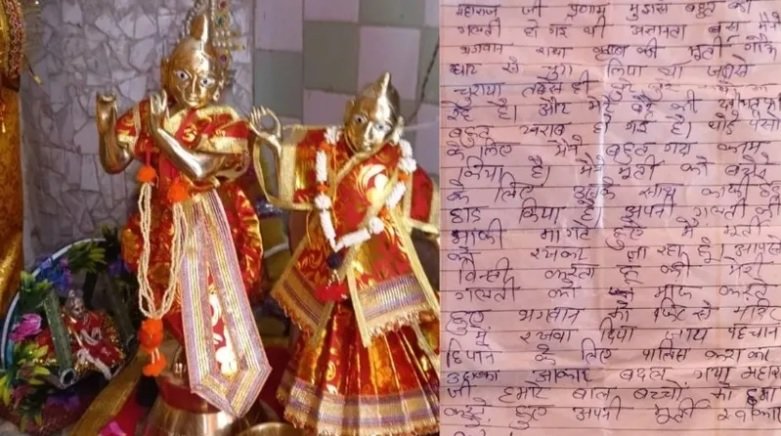 महाराज जी प्रणाम मुझसे बहुत बड़ी
गलती हो गई थी अज्ञानता वश मैंने
भगवान राधा कृष्ण की मूर्ती गौघाट
चुराया तबसे ही बुरे
रहे है। और मेरे बेटे की भी तबियत
बहुत खराब हो गई है। थोड़े पैसो
के लिए मैंने बहुत गंदा काम
किया है। मैंने मूर्ती को बेचने
के लिए उसके साथ काफी छेड़
छाड़ किया है अपनी गलती की
माफी मागते हुए मैं मूर्ती
को रखकर जा रहा हूँ। आपसे
विन्ती करता हूँ की मेरी
गलती को माफ करते
हुए भगवान को फिर से मंदिर
में रखवा दिया जाय पहचान
छिपाने के लिए पालिस कराकर
उसका आकार बदल गया महाराज
जी हमारे बाल बच्चों को क्षमा
करते हुए अपनी मूर्ती